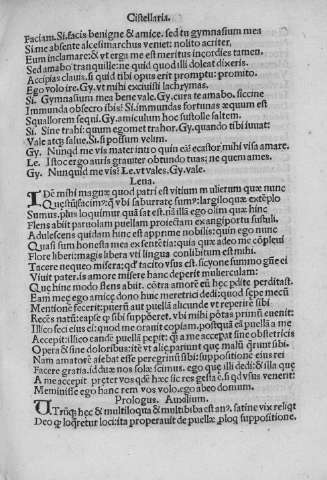 Cistellaria.
Faciam. Si. facis benigne & amice. sed tu gymnasium mea
Si me absente alcesimarchus veniet: nolito acriter,
Eum inclamare: & vt erga me est meritus incordies tamen.
Sed amabo tranquille: ne quid quod illi doleat dixeris.
Accipias clauis, si quid tibi opus erit promptu: promito.
Ego volo ire. Gy. vt mihi excuisti lachrymas.
Si. Gymnasium mea bene vale. Gy. cura te amabo. siccine
Immunda obsecro ibis! Si. immundas fortunas æquum est
Squallorem sequi. Gy. amiculum hoc sustolle saltem.
Si. Sine trahi: quum egomet trahor. Gy. quando tibi iuuat:
Vale atq; salue. Si. si possum velim.
Gy. Nunqd me vis mater intro quin eã? ecastor mihi visa amare.
Le. Istoc ergo auris grauiter obtundo tuas; ne quem ames.
Gy. Nunquid me vis! Le. vt vales. Gy. vale.
Lena.
IDẽ mihi magnæ quod parti est vitium mulierum quæ nunc
Quęstũ facimꝰ: q̃ vbi saburratę sumꝰ: largiloquæ extẽplo
Sumus. plus loquimur quã sat est. nã illã ego olim quæ hinc
Flens abiit paruolam puellam proiectam ex angiportu sustuli.
Adulescens quidam hinc est apprime nobilis: quin ego nunc
Quasi sum honesta mea ex sentẽtia: quia quæ adeo me cõpleui
Flore liberi: magis libera vti lingua conlibitum est mihi.
Tacere nequeo misera: qd' tacito vsus est. sicyone summo gñe ei
Viuit pater. is amore misere hanc deperit mulierculam:
Que hinc modo flens abiit. cõtra amorẽ eũ hęc pdite perditast.
Eam meę ego amicę dono hunc meretrici dedi: quod sepe mecũ
Mentione fecerit: puerũ aut puellã alicunde vt reperirẽ sibi
Recẽs natũ: eapse q sibi suppõeret. vbi mihi põtas primũ euenit:
Illico feci eius ei: quod me orauit copiam. postquã eã puellã a me
Accepit: illico eandẽ puellã pepit: q̃ a me accepit sine obstetricis
Opera & sine doloribus: itẽ vt aliæ pariunt quę malũ q̃runt sibi.
Nam amatorẽ aiebat esse peregrinũ sibi: suppositione eius rei
Facere gratia. id duæ nos solæ scimus. ego que illi dedi: & illa que
A me accepit pręter vos. qde hæc sic res gesta ẽ. si qd vsus venerit:
Meminisse ego hanc rem vos volo. ego abeo domum.
Prologus. Auxilium.
VTrũq; hęc & multiloqua & multibiba est anꝰ. satine vix reliqt
Deo q̃ loq̃retur loci: ita properauit de puellæ, ploq suppositione.